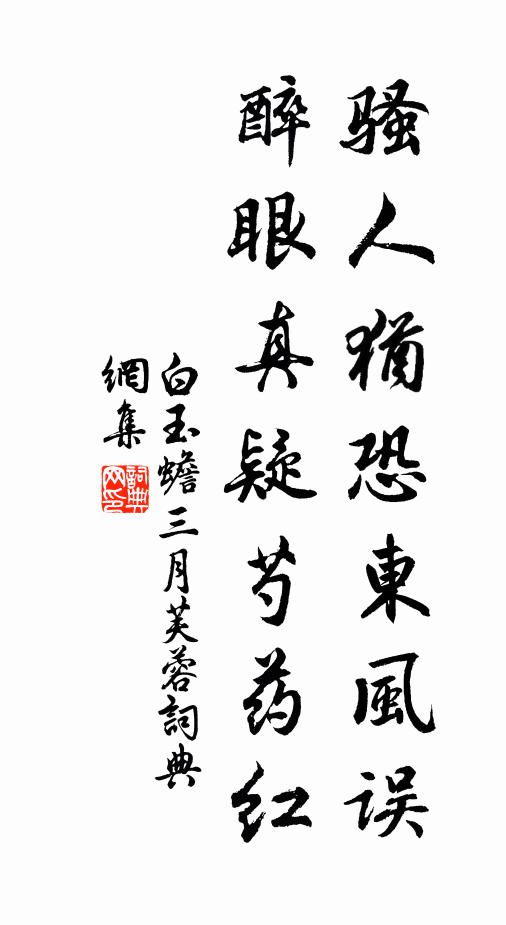 骚人犹恐東風误
醉眼真疑芍药红
白玉蟾三月芙蓉詞典
網集
詞典網印